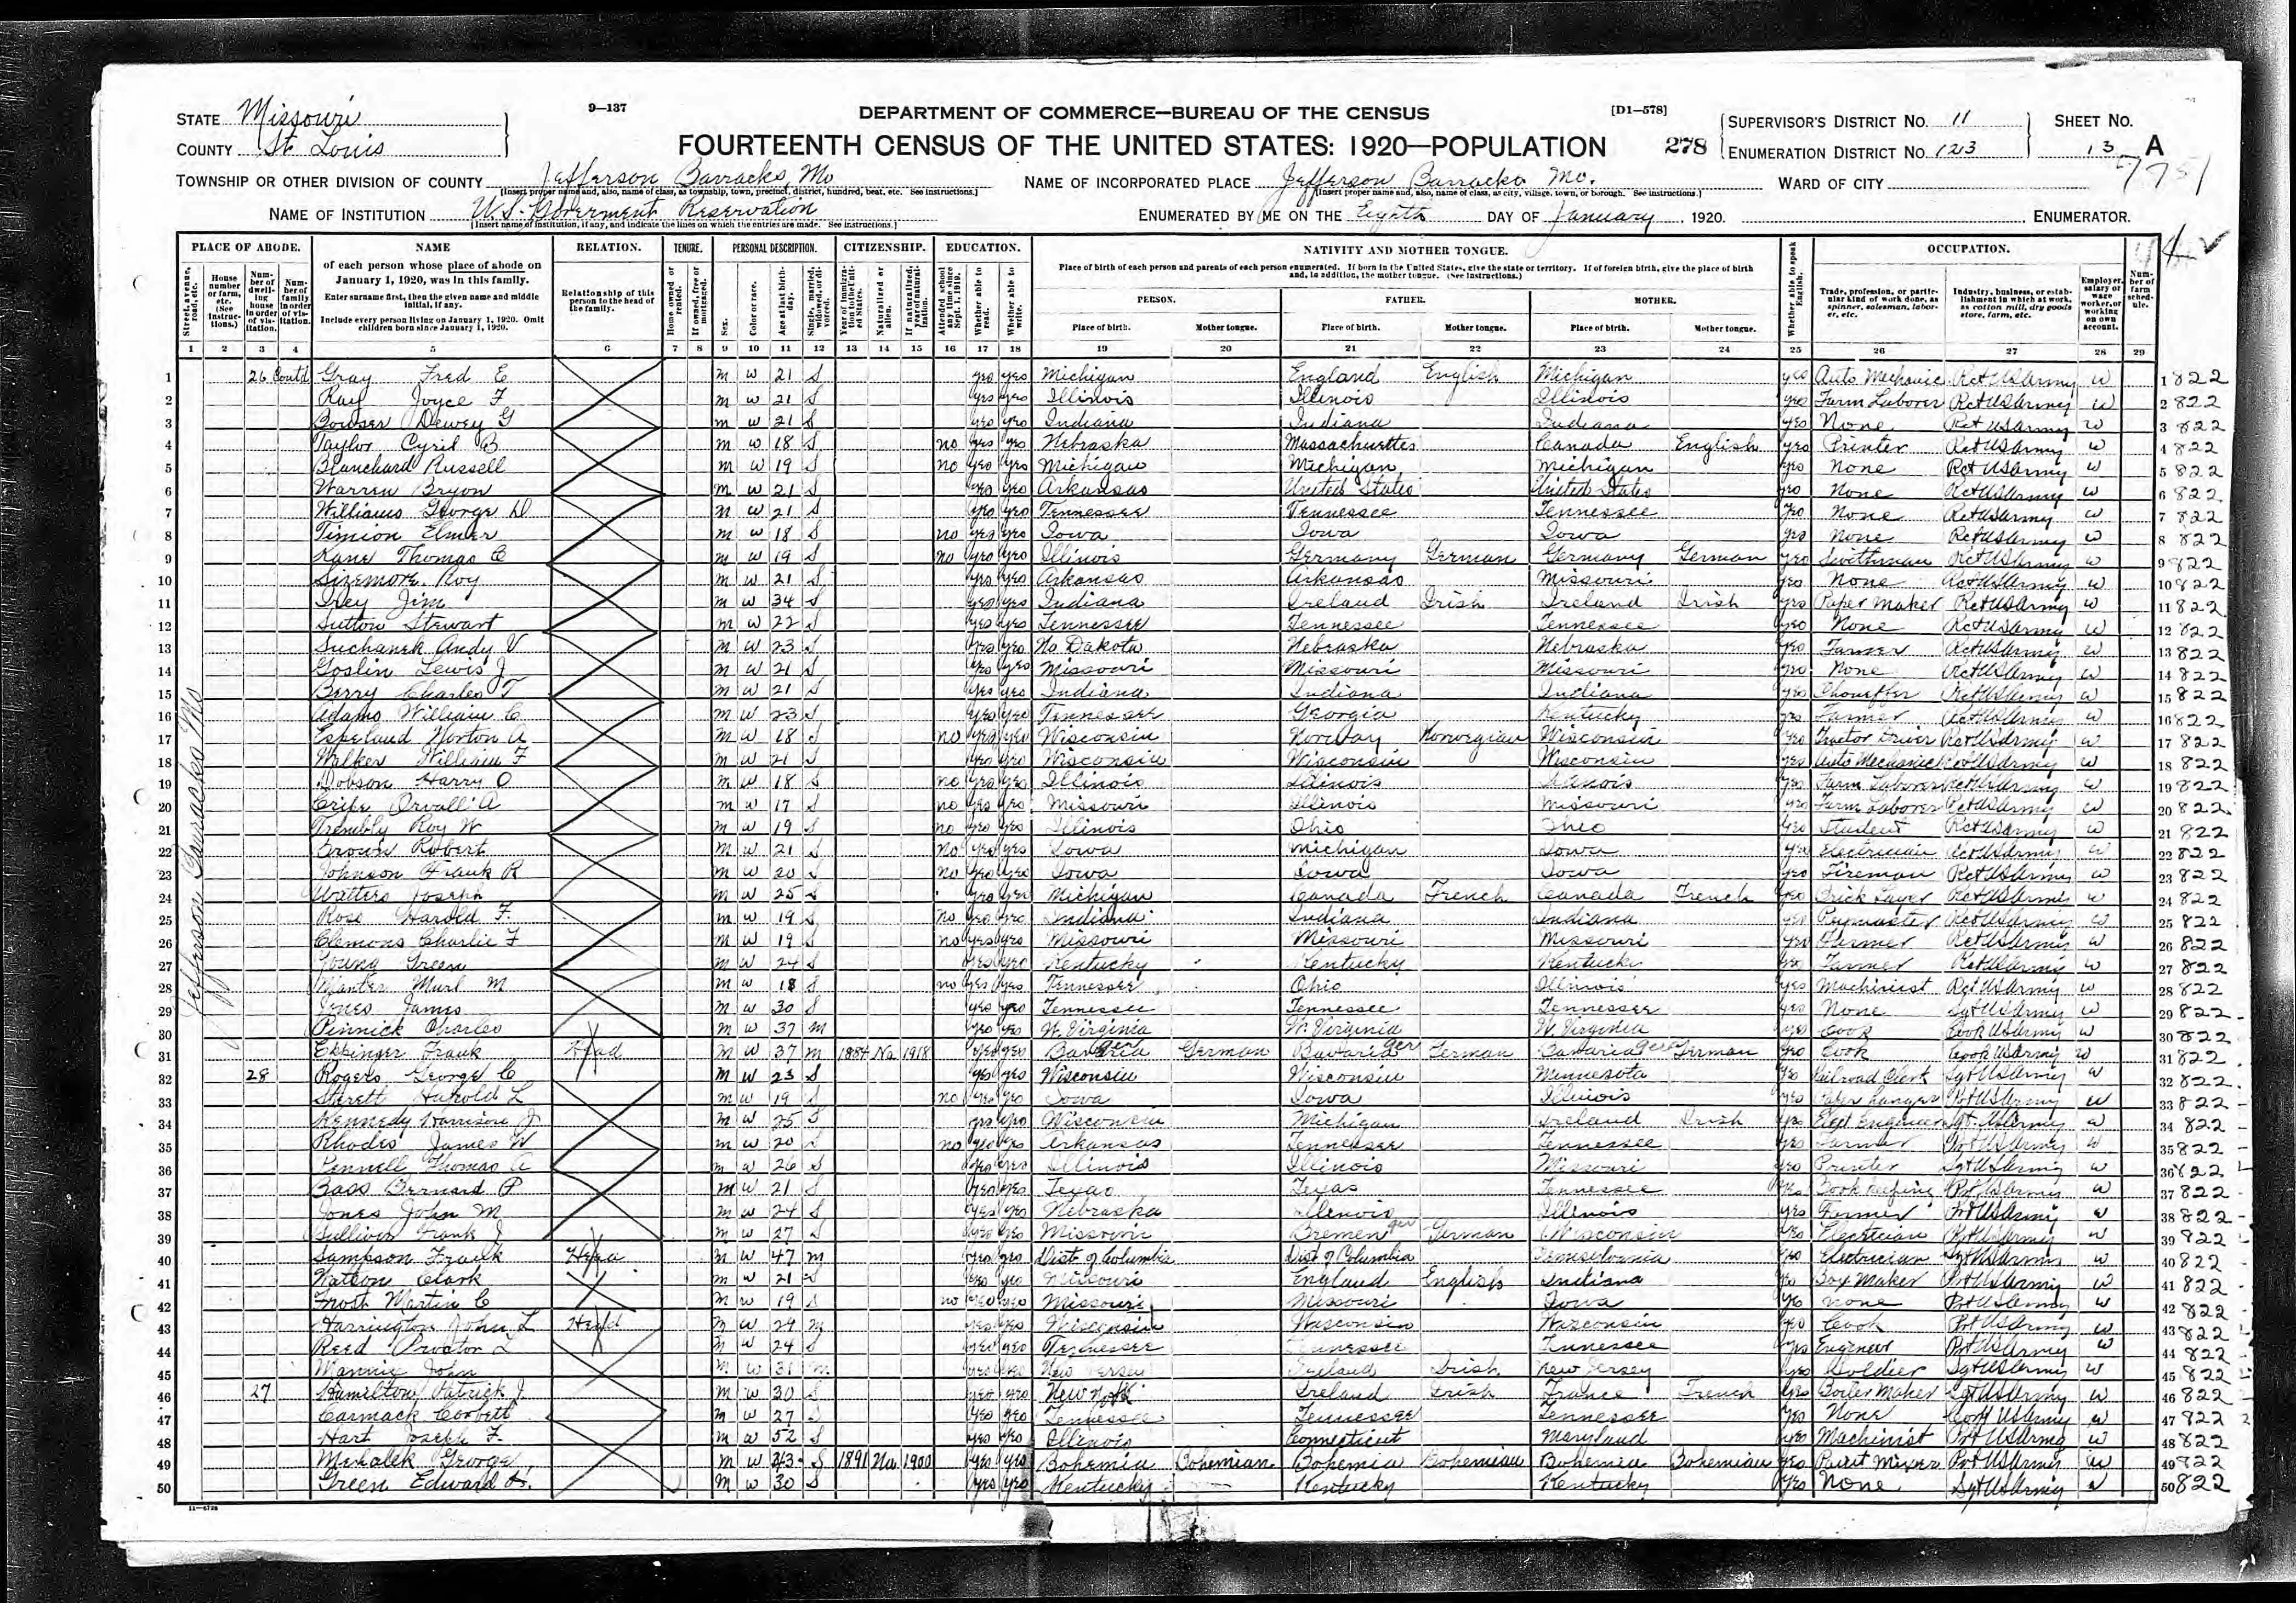 9—137
DEPARTMENT OF COMMERCE—BUREAU OF THE CENSUS
[D1—578]
STATE Missouri
COUNTY St Louis
FOURTEENTH CENSUS OF THE UNITED STATES: 1920—POPULATION
278
SUPERVISOR'S DISTRICT No. 11
ENUMERATION DISTRICT No. 123
SHEET No.
13 A
7751
TOWNSHIP OR OTHER DIVISION OF COUNTY Jefferson Barracks Mo
[Insert proper name and, also, name of class, as township, town, precinct, district, hundred, beat, etc. See instructions.]
NAME OF INCORPORATED PLACE Jefferson Barracks Mo.
[Insert proper name and, also, name of class, as city, village, town, or borough. See instructions.]
WARD OF CITY
NAME OF INSTITUTION U.S. Goverment Reservation
[Insert name of institution, if any, and indicate the lines on which the entries are made. See instructions.]
ENUMERATED BY ME ON THE Eighth DAY OF January, 1920. ENUMERATOR.
PLACE OF ABODE. NAME RELATION. TENURE. PERSONAL DESCRIPTION. CITIZENSHIP. EDUCATION. NATIVITY AND MOTHER TONGUE. OCCUPATION.
of each person whose place of abode on January 1, 1920, was in this family.
Enter surname first, then the given name and middle initial, if any.
Include every person living on January 1, 1920. Omit children born since January 1, 1920.
Relationship of this person to the head of the family.
Place of birth of each person and parents of each person enumerated. If born in the United States, give the state or territory. If of foreign birth, give the place of birth and, in addition, the mother tongue. (See instructions.)
PERSON. FATHER. MOTHER.
Place of birth. Mother tongue. Place of birth. Mother tongue. Place of birth. Mother tongue.
1 2 3 4 5 6 7 8 9 10 11 12 13 14 15 16 17 18 19 20 21 22 23 24 25 26 27 28 29
Jefferson Barracks Mo
1 26 Contd Gray Fred E m w 21 S yes yes Michigan England English Michigan yes Auto Mechanic Rct US Army w 1 822
2 Ray Joyce F m w 21 S yes yes Illinois Illinois Illinois yes Farm Laborer Rct US Army w 2 822
3 Bowser Dewey G m w 21 S yes yes Indiana Indiana Indiana yes None Rct US Army w 3 822
4 Taylor Cyril B m w 18 S no yes yes Nebraska Massachusettes Canada English yes Printer Rct US Army w 4 822
5 Blanchard Russell m w 19 S no yes yes Michigan Michigan Michigan yes None Rct US Army w 5 822
6 Warren Bryon m w 21 S yes yes Arkansas United States United States yes None Rct US Army w 6 822
7 Williams George D m w 21 S yes yes Tennessee Tennessee Tennessee yes None Rct US Army w 7 822
8 Timion Elmer m w 18 S no yes yes Iowa Iowa Iowa yes None Rct US Army w 8 822
9 Kane Thomas C m w 19 S no yes yes Illinois Germany German Germany German yes Switchman Rct US Army w 9 822
10 Sizemore Roy m w 21 S yes yes Arkansas Arkansas Missouri yes None Rct US Army w 10 822
11 Jim m w 34 S yes yes Indiana Ireland Irish Ireland Irish yes Paper Maker Rct US Army w 11 822
12 Sutton Stewart m w 22 S yes yes Tennessee Tennessee Tennessee yes None Rct US Army w 12 822
13 Suchanek Andy V m w 23 S yes yes No Dakota Nebraska Nebraska yes Farmer Rct US Army w 13 822
14 Goslin Lewis J m w 21 S yes yes Missouri Missouri Missouri yes None Rct US Army w 14 822
15 Berry Charles T m w 21 S yes yes Indiana Indiana Indiana yes Chouffer Rct US Army w 15 822
16 Adams William C m w 23 S yes yes Tennessee Georgia Kentucky yes Farmer Rct US Army w 16 822
17 Espeland Norton A m w 18 S no yes yes Wisconsin Norway Norwegian Wisconsin yes Tractor Driver Rct US Army w 17 822
18 Walker William F m w 21 S yes yes Wisconsin Wisconsin Wisconsin yes Auto Mechanic Rct US Army w 18 822
19 Dobson Harry O m w 18 S no yes yes Illinois Illinois Illinois yes Farm Laborer Rct US Army w 19 822
20 Crife Orvall A m w 17 S no yes yes Missouri Illinois Missouri yes Farm Laborer Rct US Army w 20 822
21 Trembly Roy W m w 19 S no yes yes Illinois Ohio Ohio yes Student Rct US Army w 21 822
22 Brown Robert m w 21 S no yes yes Iowa Michigan Iowa yes Electrician Rct US Army w 22 822
23 Johnson Frank R m w 20 S no yes yes Iowa Iowa Iowa yes Fireman Rct US Army w 23 822
24 Watters Joseph m w 25 S yes yes Michigan Canada French Canada French yes Brick Layer Rct US Army w 24 822
25 Rose Harold F. m w 19 S no yes yes Indiana Indiana Indiana yes Rct US Army w 25 822
26 Clemons Charlie F m w 19 S no yes yes Missouri Missouri Missouri yes Farmer Rct US Army w 26 822
27 Young Green m w 24 S yes yes Kentucky Kentucky Kentucky yes Farmer Rct US Army w 27 822
28 Manter Murl M m w 18 S no yes yes Tennessee Ohio Illinois yes Machinist Rct US Army w 28 822
29 Jones James m w 30 S yes yes Tennessee Tennessee Tennessee yes None Sgt US Army w 29 822
30 Pinnick Charles m w 37 m yes yes W. Virginia W. Virginia W. Virginia yes Cook Cook US Army w 30 822
31 Eppinger Frank Head m w 37 m 1884 Na 1918 yes yes Bavaria ger German Bavaria ger German Bavaria ger German yes Cook Cook US Army w 31 822
32 28 Rogers George C m w 23 S yes yes Wisconsin Wisconsin Minnesota yes Railroad Clerk Sgt US Army w 32 822
33 Sterett Harold L m w 19 S no yes yes Iowa Iowa Illinois yes Paper Hanger Pvt US Army w 33 822
34 Kennedy Harrison J m w 25 S yes yes Wisconsin Michigan Ireland Irish yes Elect Engineer Sgt. US Army w 34 822
35 Rhodes James W m w 20 S no yes yes Arkansas Tennessee Tennessee yes Farmer Pvt US Army w 35 822
36 Pennell Thomas A m w 26 S yes yes Illinois Illinois Missouri yes Printer Sgt US Army w 36 822
37 Bass Bernard P m w 21 S yes yes Texas Texas Tennessee yes Book Keeping Pvt US Army w 37 822
38 Jones John M m w 24 S yes yes Nebraska Illinois Illinois yes Farmer Pvt US Army w 38 822
39 Sullivan Frank J m w 27 S yes yes Missouri Bremen ger German Wisconsin yes Electrician Pvt US Army w 39 822
40 Sampson Frank Head m w 47 m yes yes Dist of Columbia Dist of Columbia Pennsylvania yes Electrician Sgt US Army w 40 822
41 Watson Clark m w 21 S yes yes Missouri England English Indiana yes Box Maker Pvt US Army w 41 822
42 Frost Martin C m w 19 S no yes yes Missouri Missouri Iowa yes None Pvt US Army w 42 822
43 Harrington John L Head m w 29 m yes yes Wisconsin Wisconsin Wisconsin yes Cook Pvt US Army w 43 822
44 Reed Proctor L m w 24 S yes yes Tennessee Tennessee Tennessee yes Engineer Pvt US Army w 44 822
45 John m w 31 m yes yes New Jersey Ireland Irish New Jersey yes Soldier Sgt US Army w 45 822
46 27 Hamilton Patrick J m w 30 S yes yes New York Ireland Irish France French yes Boiler Maker Sgt US Army w 46 822
47 Carmack Corbett m w 27 S yes yes Tennessee Tennessee Tennessee yes None Cook US Army w 47 822
48 Hart Joseph F. m w 52 S yes yes Illinois Connecticut Maryland yes Machinist Pvt US Army w 48 822
49 Mekalek George m w S 1891 Na 1900 yes yes Bohemia Bohemian Bohemia Bohemian Bohemia Bohemian yes Paint Mixer Pvt US Army w 49 822
50 Green Edward H. m w 30 S yes yes Kentucky Kentucky Kentucky yes None Sgt US Army w 50 822